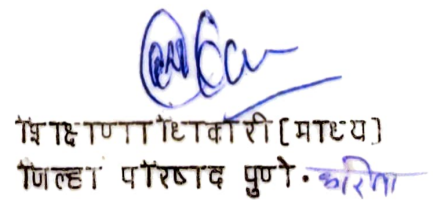 शिक्षणाधिकारी [माध्य]
जिल्हा परिषद पुणे. करिता